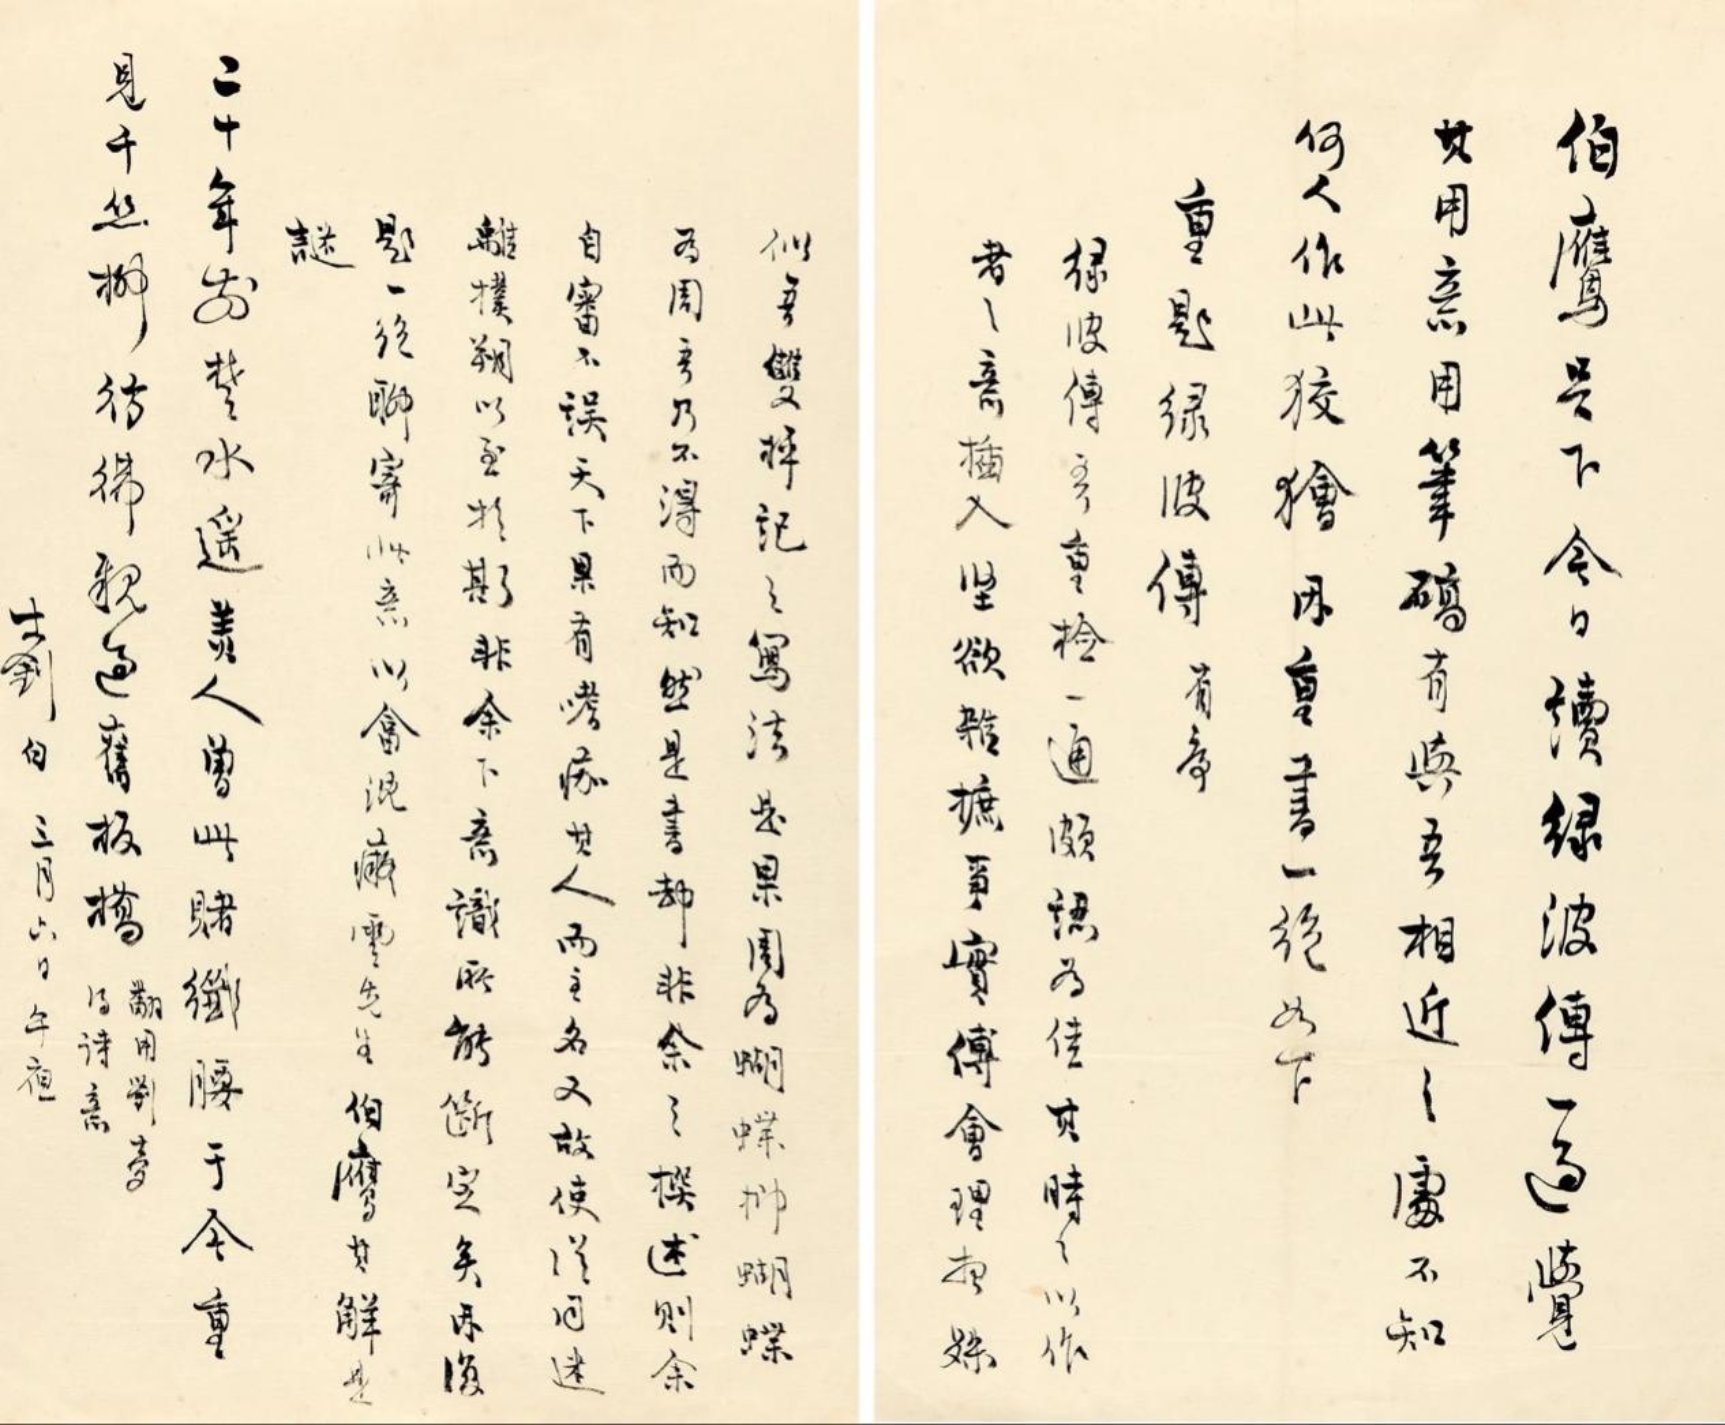 伯鷹足下今日讀緑波傳一過覺
其用意用筆確有與吾相近之處不知
何人作此狡獪因重書一絶如下
重題緑波傳 有序
緑波傳吾重檢一過頗認為佳其時時以作
者之意插入坐欲雜摭事實傅會理想殊
似吾雙枰記之寫法是果周為蝴蝶抑蝴蝶
為周吾乃不得而知然是書却非余之撰述則余
自審不誤天下果有嗜痂其人而主名又故使從同迷
離撲朔以至於斯非余下意識所能斷定矣因復
題一絶聊寄此意以會沈瘢雲先生伯鷹其解是
謎
二十年前楚水遥美人曾此賭纖腰于今重
見千絲柳彷彿親過舊板橋 翻用劉夢
得詩意
士釗白 三月六日午夜